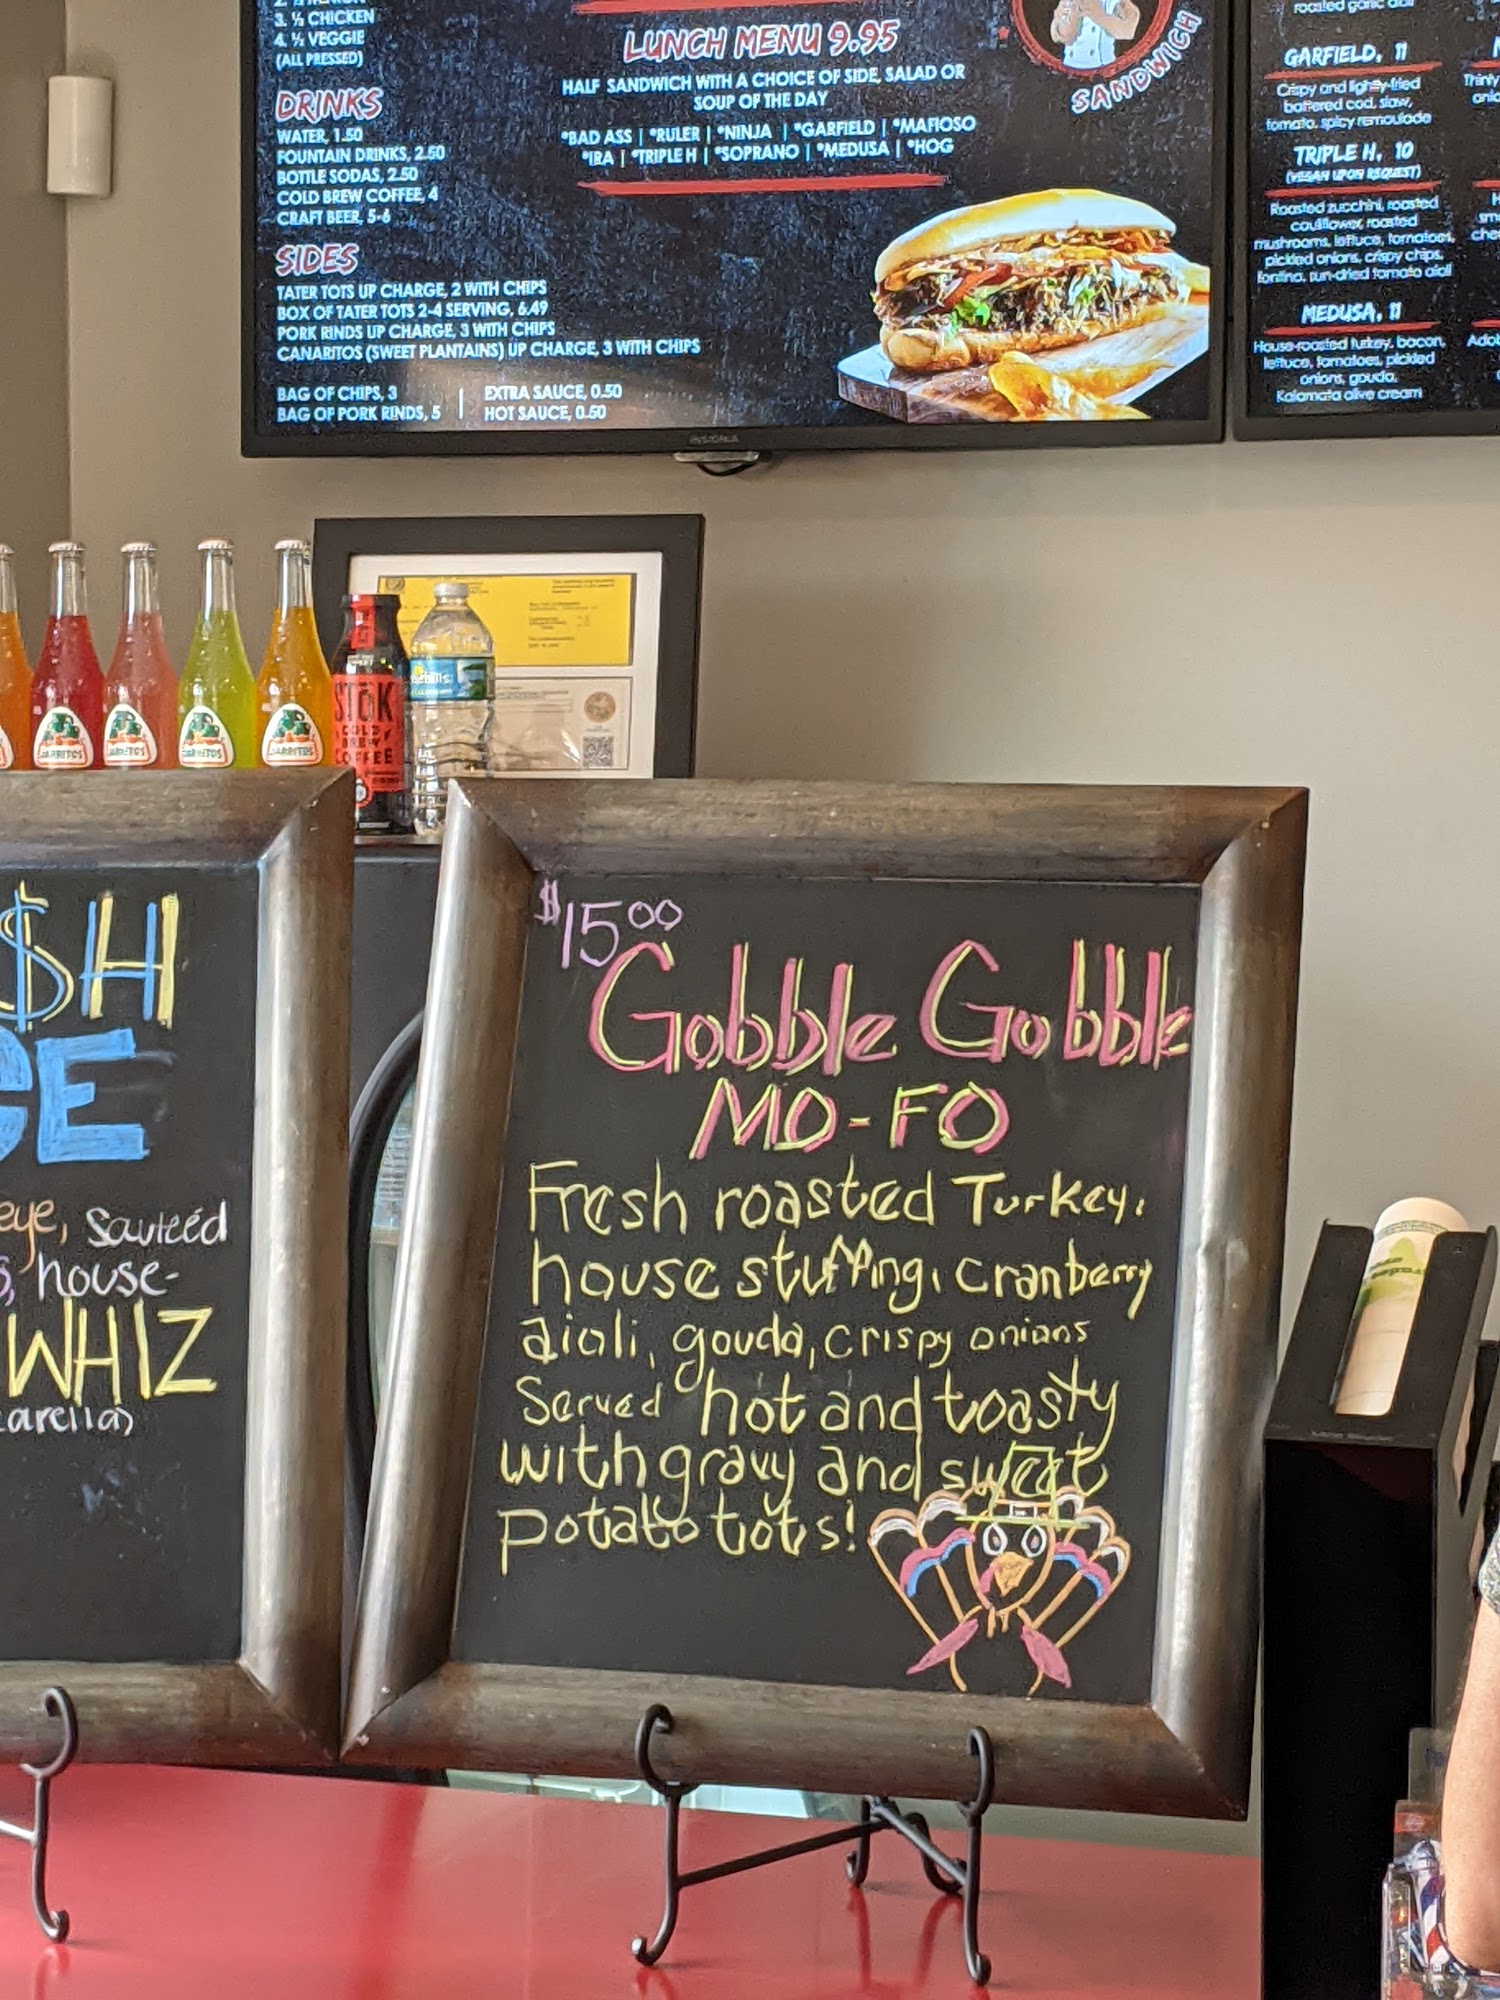 3. ½ CHICKEN
4. ½ VEGGIE
(ALL PRESSED)
DRINKS
WATER, 1.50
FOUNTAIN DRINKS, 2.50
BOTTLE SODAS, 2.50
COLD BREW COFFEE, 4
CRAFT BEER, 5-6
SIDES
TATER TOTS UP CHARGE, 2 WITH CHIPS
BOX OF TATER TOTS 2-4 SERVING, 6.49
PORK RINDS UP CHARGE, 3 WITH CHIPS
CANARITOS (SWEET PLANTAINS) UP CHARGE, 3 WITH CHIPS
BAG OF CHIPS, 3
BAG OF PORK RINDS, 5
EXTRA SAUCE, 0.50
HOT SAUCE, 0.50
LUNCH MENU 9.95
HALF SANDWICH WITH A CHOICE OF SIDE, SALAD OR
SOUP OF THE DAY
*BAD ASS | *RULER | *NINJA | *GARFIELD | *MAFIOSO
*IRA | *TRIPLE H | *SOPRANO | *MEDUSA | *HOG
SANDWICH
roasted garlic aioli
GARFIELD, 11
Crispy and lightly fried
battered cod, slaw,
tomato, spicy remoulade
TRIPLE H, 10
(VEGAN UPON REQUEST)
Roasted zucchini, roasted
cauliflower, roasted
mushrooms, lettuce, tomatoes,
pickled onions, crispy chips,
fontina, sun-dried tomato aioli
MEDUSA, 11
House-roasted turkey, bacon,
lettuce, tomatoes, pickled
onions, gouda,
Kalamata olive cream
JARRITOS
JARRITOS
JARRITOS
JARRITOS
STōK
COLD
BREW
COFFEE
$H
GE
eye, sautéed
house-
WHIZ
arella)
$15.00
Gobble Gobble
MO-FO
Fresh roasted Turkey,
house stuffing, cranberry
aioli, gouda, crispy onions
Served hot and toasty
with gravy and sweet
potato tots!